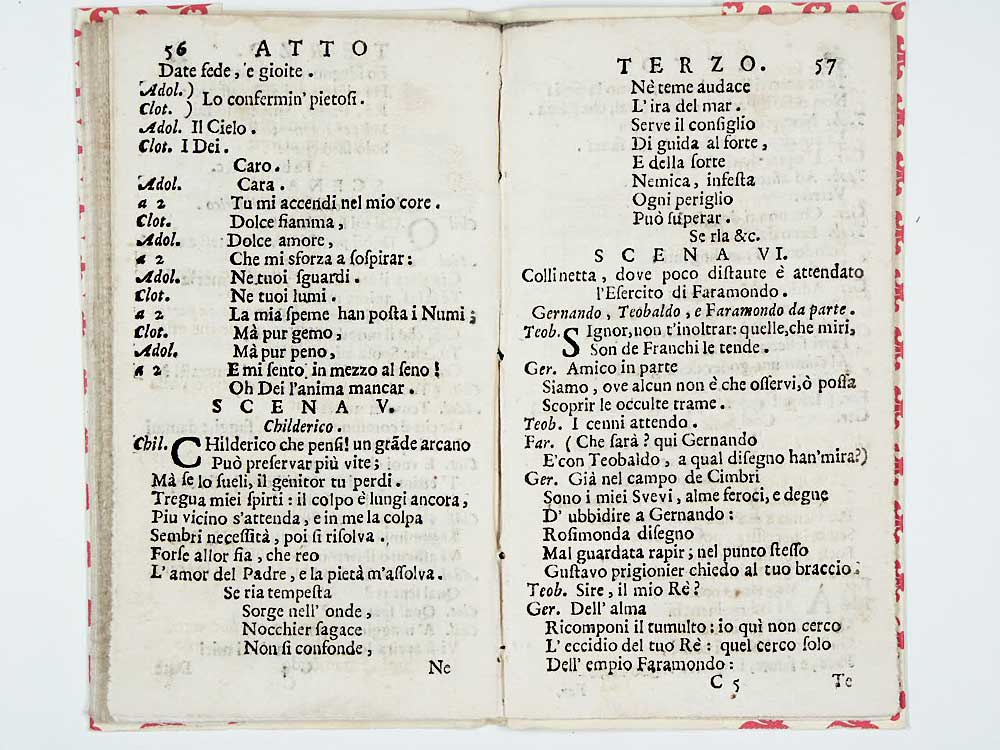 56 ATTO
Date fede, e gioite.
Adol.)
Clot. ) Lo confermin' pietosi.
Adol. Il Cielo.
Clot. I Dei.
Caro.
Adol. Cara.
a 2 Tu mi accendi nel mio core.
Clot. Dolce fiamma,
Adol. Dolce amore,
a 2 Che mi sforza a sospirar:
Adol. Ne tuoi sguardi.
Clot. Ne tuoi lumi.
a 2 La mia speme han posta i Numi;
Clot. Mà pur gemo,
Adol. Mà pur peno,
a 2 E mi sento in mezzo al seno!
Oh Dei l'anima mancar.
SCENA V.
Childerico.
Chil. CHilderico che pensi! un grãde arcano
Può preservar più vite;
Mà se lo sueli, il genitor tu perdi.
Tregua miei spirti: il colpo è lungi ancora,
Piu vicino s'attenda, e in me la colpa
Sembri necessità, poi si risolva.
Forse allor fia, che reo
L'amor del Padre, e la pietà m'assolva.
Se ria tempesta
Sorge nell' onde,
Nocchier sagace
Non si confonde,
Ne
TERZO. 57
Nè teme audace
L'ira del mar.
Serve il consiglio
Di guida al forte,
E della sorte
Nemica, infesta
Ogni periglio
Può superar.
Se rIa &c.
SCENA VI.
Collinetta, dove poco distante è attendato
l'Esercito di Faramondo.
Gernando, Teobaldo, e Faramondo da parte.
Teob. SIgnor, non t'inoltrar: quelle, che miri,
Son de Franchi le tende.
Ger. Amico in parte
Siamo, ove alcun non è che osservi, ò possa
Scoprir le occulte trame.
Teob. I cenni attendo.
Far. (Che sarà? qui Gernando
E'con Teobaldo, a qual disegno han'mira?)
Ger. Già nel campo de Cimbri
Sono i miei Svevi, alme feroci, e degne
D'ubbidire a Gernando:
Rosimonda disegno
Mal guardata rapir; nel punto stesso
Gustavo prigionier chiedo al tuo braccio.
Teob. Sire, il mio Rè?
Ger. Dell' alma
Ricomponi il tumulto: io quì non cerco
L'eccidio del tuo Rè: quel cerco solo
Dell' empio Faramondo:
C 5 Te